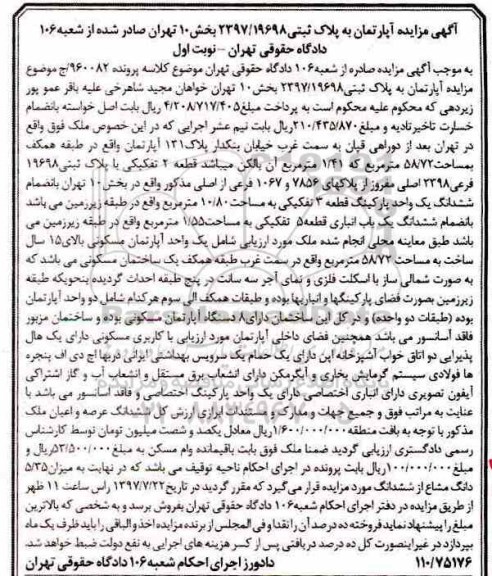 آگهی مزایده آپارتمان به پلاک ثبتی ۲۳۹۷/۱۹۶۹۸ بخش ۱۰ تهران صادر شده از شعبه ۱۰۶
دادگاه حقوقی تهران – نوبت اول
به موجب آگهی مزایده صادره از شعبه ۱۰۶ دادگاه حقوقی تهران موضوع کلاسه پرونده ۹۶۰۰۸۲/ج موضوع
مزایده آپارتمان به پلاک ثبتی ۲۳۹۷/۱۹۶۹۸ بخش ۱۰ تهران خواهان مجید شاهرخی علیه باقر عمو پور
زیردهی که محکوم علیه محکوم است به پرداخت مبلغ ۴/۲۰۸/۷۱۷/۴۰۵ ریال بابت اصل خواسته بانضمام
خسارت تاخیر تادیه و مبلغ ۲۱۰/۴۳۵/۸۷۰ ریال بابت نیم عشر اجرایی که در این خصوص ملک فوق واقع
در تهران بعد از دوراهی قپان به سمت غرب خیابان بنکدار پلاک ۱۳۱ آپارتمان واقع در طبقه همکف
بمساحت ۵۸/۷۲ مترمربع که ۱/۴۱ مترمربع آن بالکن میباشد قطعه ۲ تفکیکی با پلاک ثبتی ۱۹۶۹۸
فرعی ۲۳۹۸ اصلی مفروز از پلاکهای ۷۸۵۶ و ۱۰۶۷ فرعی از اصلی مذکور واقع در بخش ۱۰ تهران بانضمام
ششدانگ یک واحد پارکینگ قطعه ۳ تفکیکی به مساحت ۱۰/۸۰ مترمربع واقع در طبقه زیرزمین می باشد
بانضمام ششدانگ یک باب انباری قطعه ۵ تفکیکی به مساحت ۱/۵۵ مترمربع واقع در طبقه زیرزمین می
باشد طبق معاینه محلی انجام شده ملک مورد ارزیابی شامل یک واحد آپارتمان مسکونی بالای ۱۵ سال
ساخت به مساحت ۵۸/۷۲ مترمربع واقع در سمت غرب طبقه همکف یک ساختمان مسکونی می باشد که
به صورت شمالی ساز با اسکلت فلزی و نمای آجر سه سانت در پنج طبقه احداث گردیده بنحویکه طبقه
زیرزمین بصورت فضای پارکینگها و انباریها بوده و طبقات همکف الی سوم هر کدام شامل دو واحد آپارتمان
بوده (طبقات دو واحده) و در کل این ساختمان دارای ۸ دستگاه آپارتمان مسکونی بوده و ساختمان مزبور
فاقد آسانسور می باشد همچنین فضای داخلی آپارتمان مورد ارزیابی با کاربری مسکونی دارای یک هال
پذیرایی دو اتاق خواب آشپزخانه اپن دارای یک حمام یک سرویس بهداشتی ایرانی دربها اچ دی اف پنجره
ها فولادی سیستم گرمایش بخاری و آبگرمکن دارای انشعاب برق مستقل و انشعاب آب و گاز اشتراکی
آیفون تصویری دارای انباری اختصاصی دارای یک واحد پارکینگ اختصاصی و فاقد آسانسور می باشد با
عنایت به مراتب فوق و جمیع جهات و مدارک و مستندات ابرازی ارزش کل ششدانگ عرصه و اعیان ملک
مذکور با توجه به بافت منطقه ۱/۶۰۰/۰۰۰/۰۰۰ ریال معادل یکصد و شصت میلیون تومان توسط کارشناس
رسمی دادگستری ارزیابی گردید ضمنا ملک فوق بابت باقیمانده وام مسکن به مبلغ ۵۳/۵۰۰/۰۰۰ ریال و
مبلغ ۱۰۰/۰۰۰/۰۰۰ ریال بابت پرونده در اجرای احکام ناحیه توقیف می باشد که در نهایت به میزان ۵/۳۵
دانگ مشاع از ششدانگ مورد مزایده قرار می گیرد که مقرر گردید در تاریخ ۱۳۹۷/۷/۲۲ راس ساعت ۱۱ ظهر
از طریق مزایده در دفتر اجرای احکام شعبه ۱۰۶ دادگاه حقوقی تهران بفروش برسد و به شخصی که بالاترین
مبلغ را پیشنهاد نماید فروخته ده درصد آن را نقدا و فی المجلس از برنده مزایده اخذ و الباقی را باید ظرف یک ماه
بپردازد در غیر اینصورت کل ده درصد دریافتی پس از کسر هزینه های اجرایی به نفع دولت ضبط خواهد شد.
۱۱۰/۷۵۱۷۶ دادورز اجرای احکام شعبه ۱۰۶ دادگاه حقوقی تهران